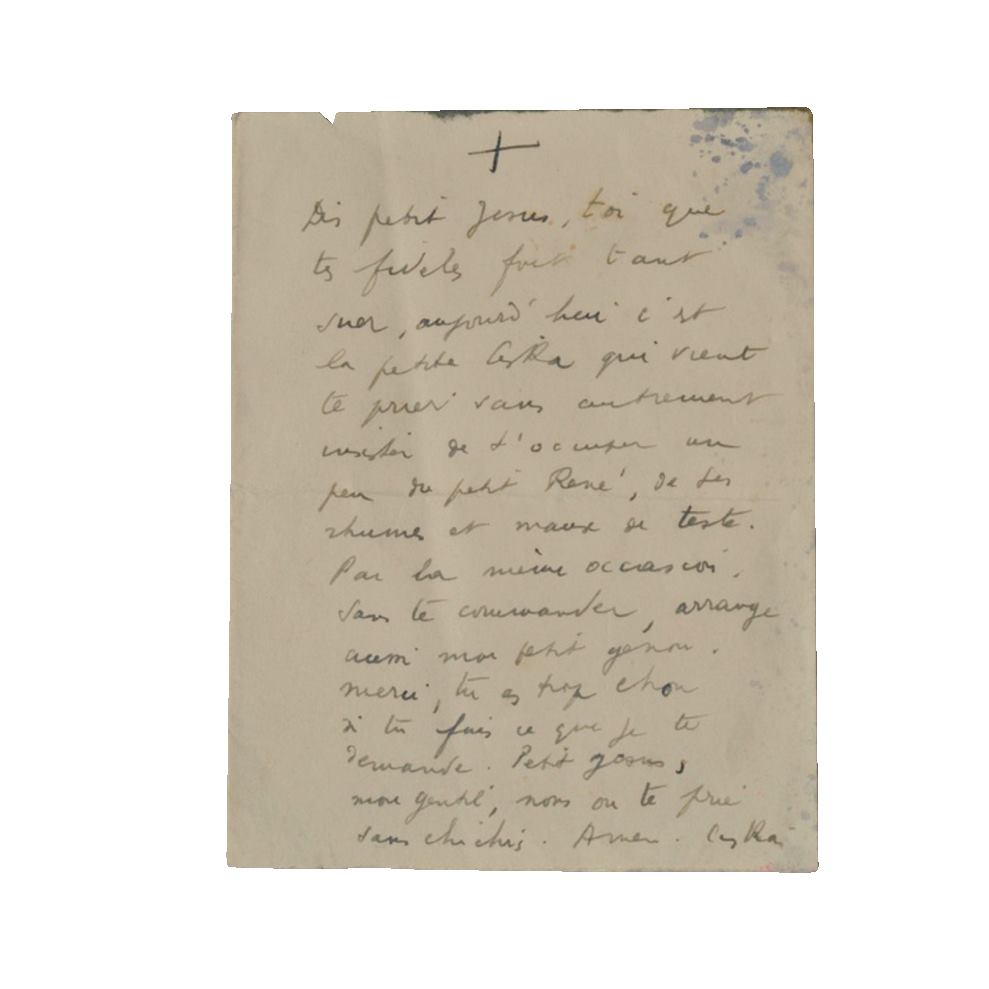 Dis petit Jesus, toi que
tes fidèles font tant
suer, aujourd'hui c'est
la petite Cyska qui vient
te prier sans autrement
insister de t'occuper un
peu du petit René, de ses
rhumes et maux de teste.
Par la même occasion,
sans te commander, arrange
aussi mon petit genou.
merci, tu es trop chou
si tu fais ce que je te
demande. Petit Jesus,
mon gentil, nous on te prie
sans chichis. Amen. Cyska